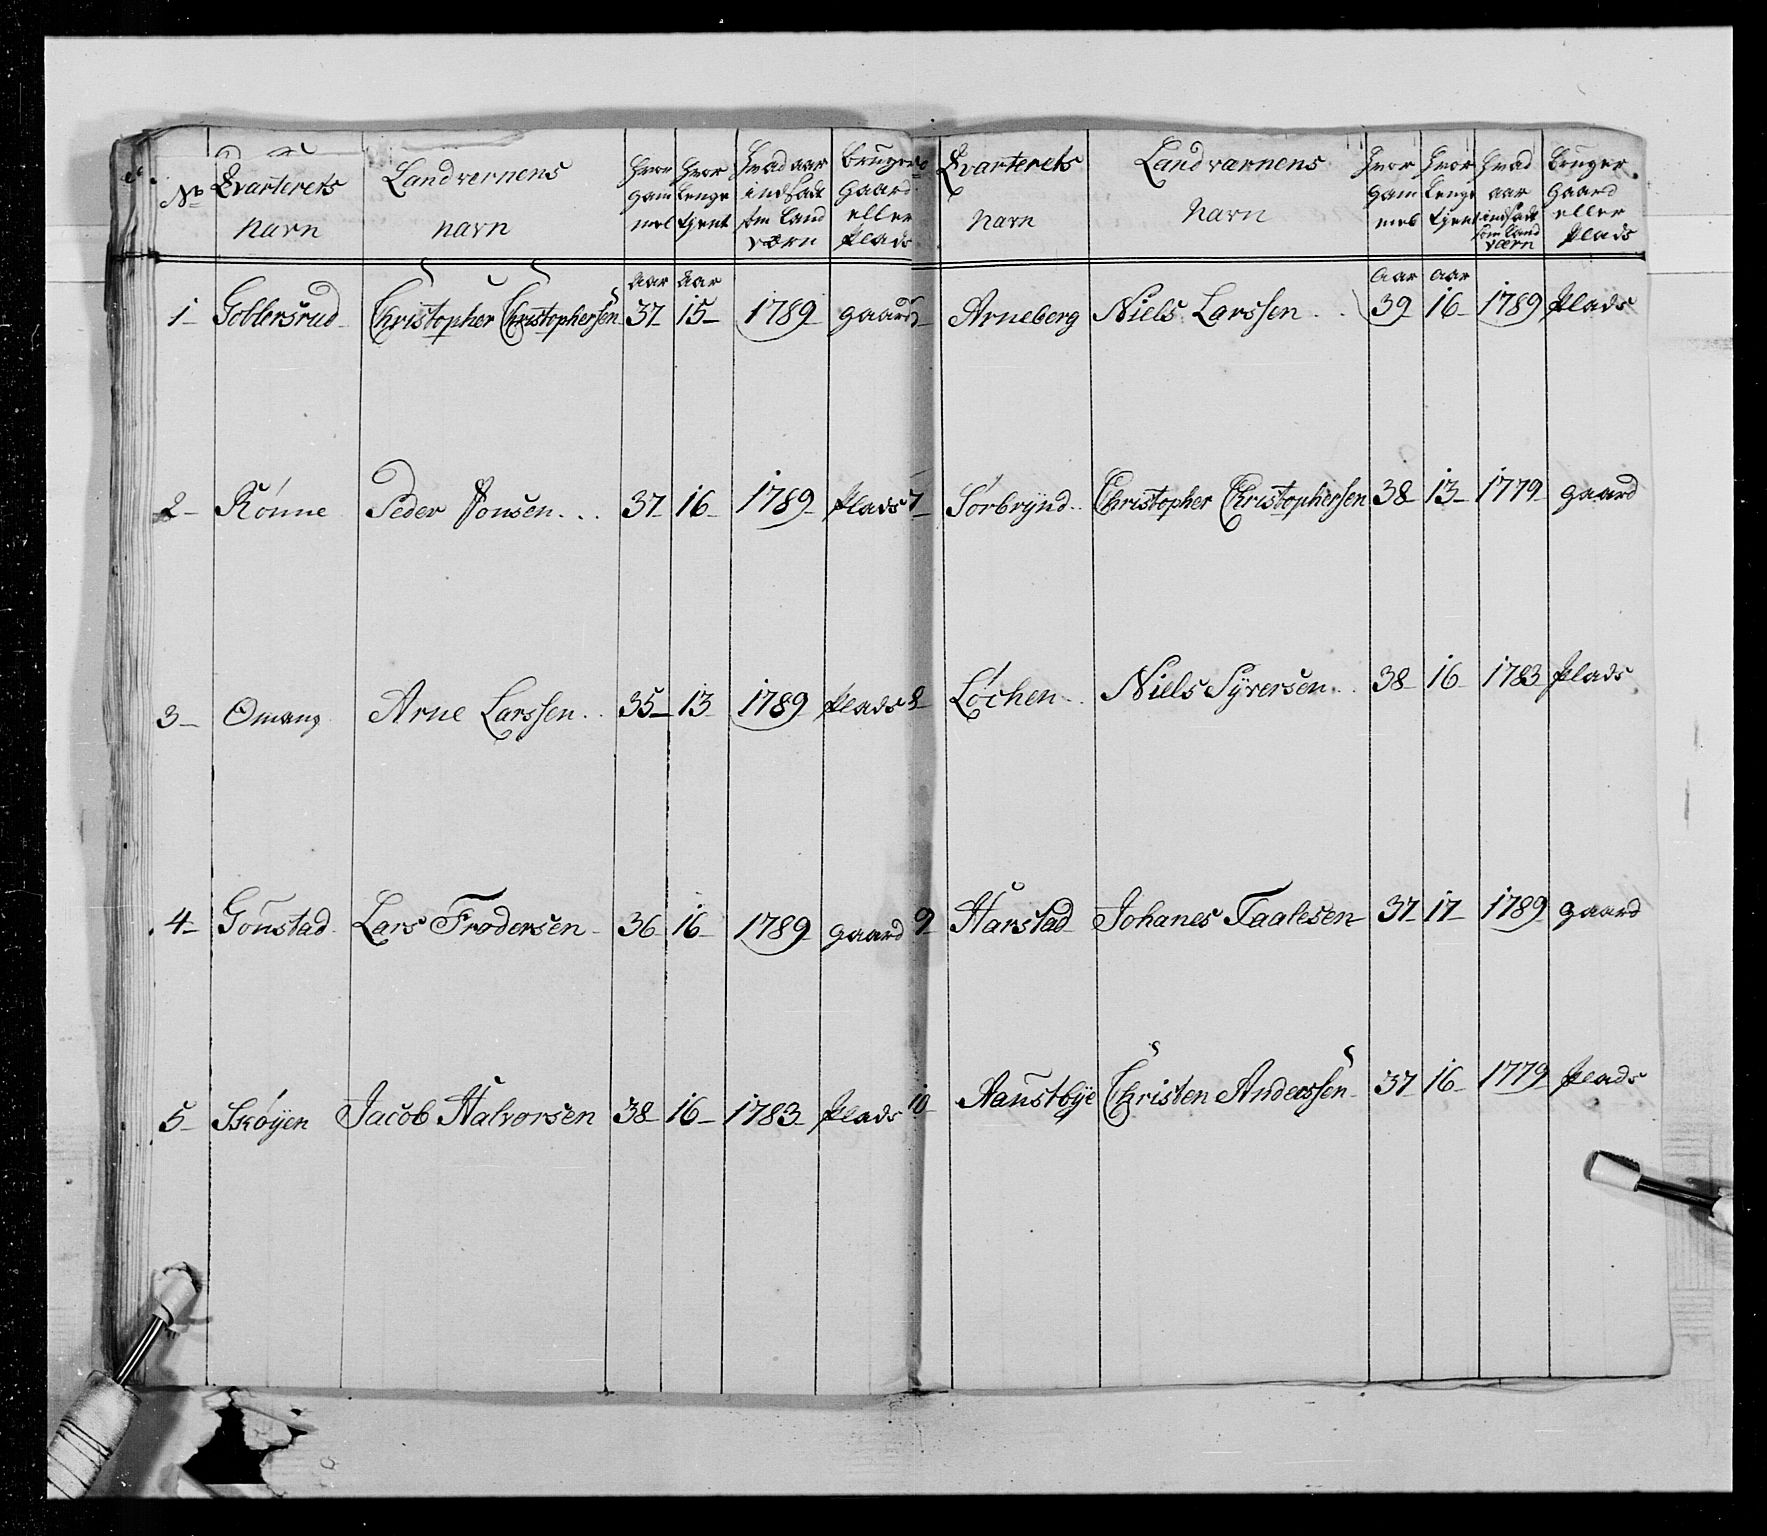 No Qvarterets navn Landvernens navn Hvor gammel Hvor lenge tjent Hvad aar indsadt som land værn Bruger gaard eller plads
Aar Aar
1 Goblersrud Christopher Christophersen 37 15 1789 gaard
2 Rönne Peder Jonsen 37 16 1789 plads
3 Omang Arne Larssen 35 13 1789 plads
4 Gonstad Lars Frodersen 36 16 1789 gaard
5 Skøyen Jacob Halvorsen 38 16 1783 plads
Qvarterets navn Landværnens navn Hvor gammel Hvor lenge tjent Hvad aar indsadt som land værn Bruger gaard eller plads
Aar Aar
Arneberg Niels Larssen 39 16 1789 plads
7 Sörbrÿnd Christopher Christophersen 38 13 1779 gaard
8 Löchen Niels Sÿversen 38 16 1783 plads
9 Harstad Johanes Taalesen 37 17 1789 gaard
10 Haustbÿe Christen Anderssen 37 16 1779 plads